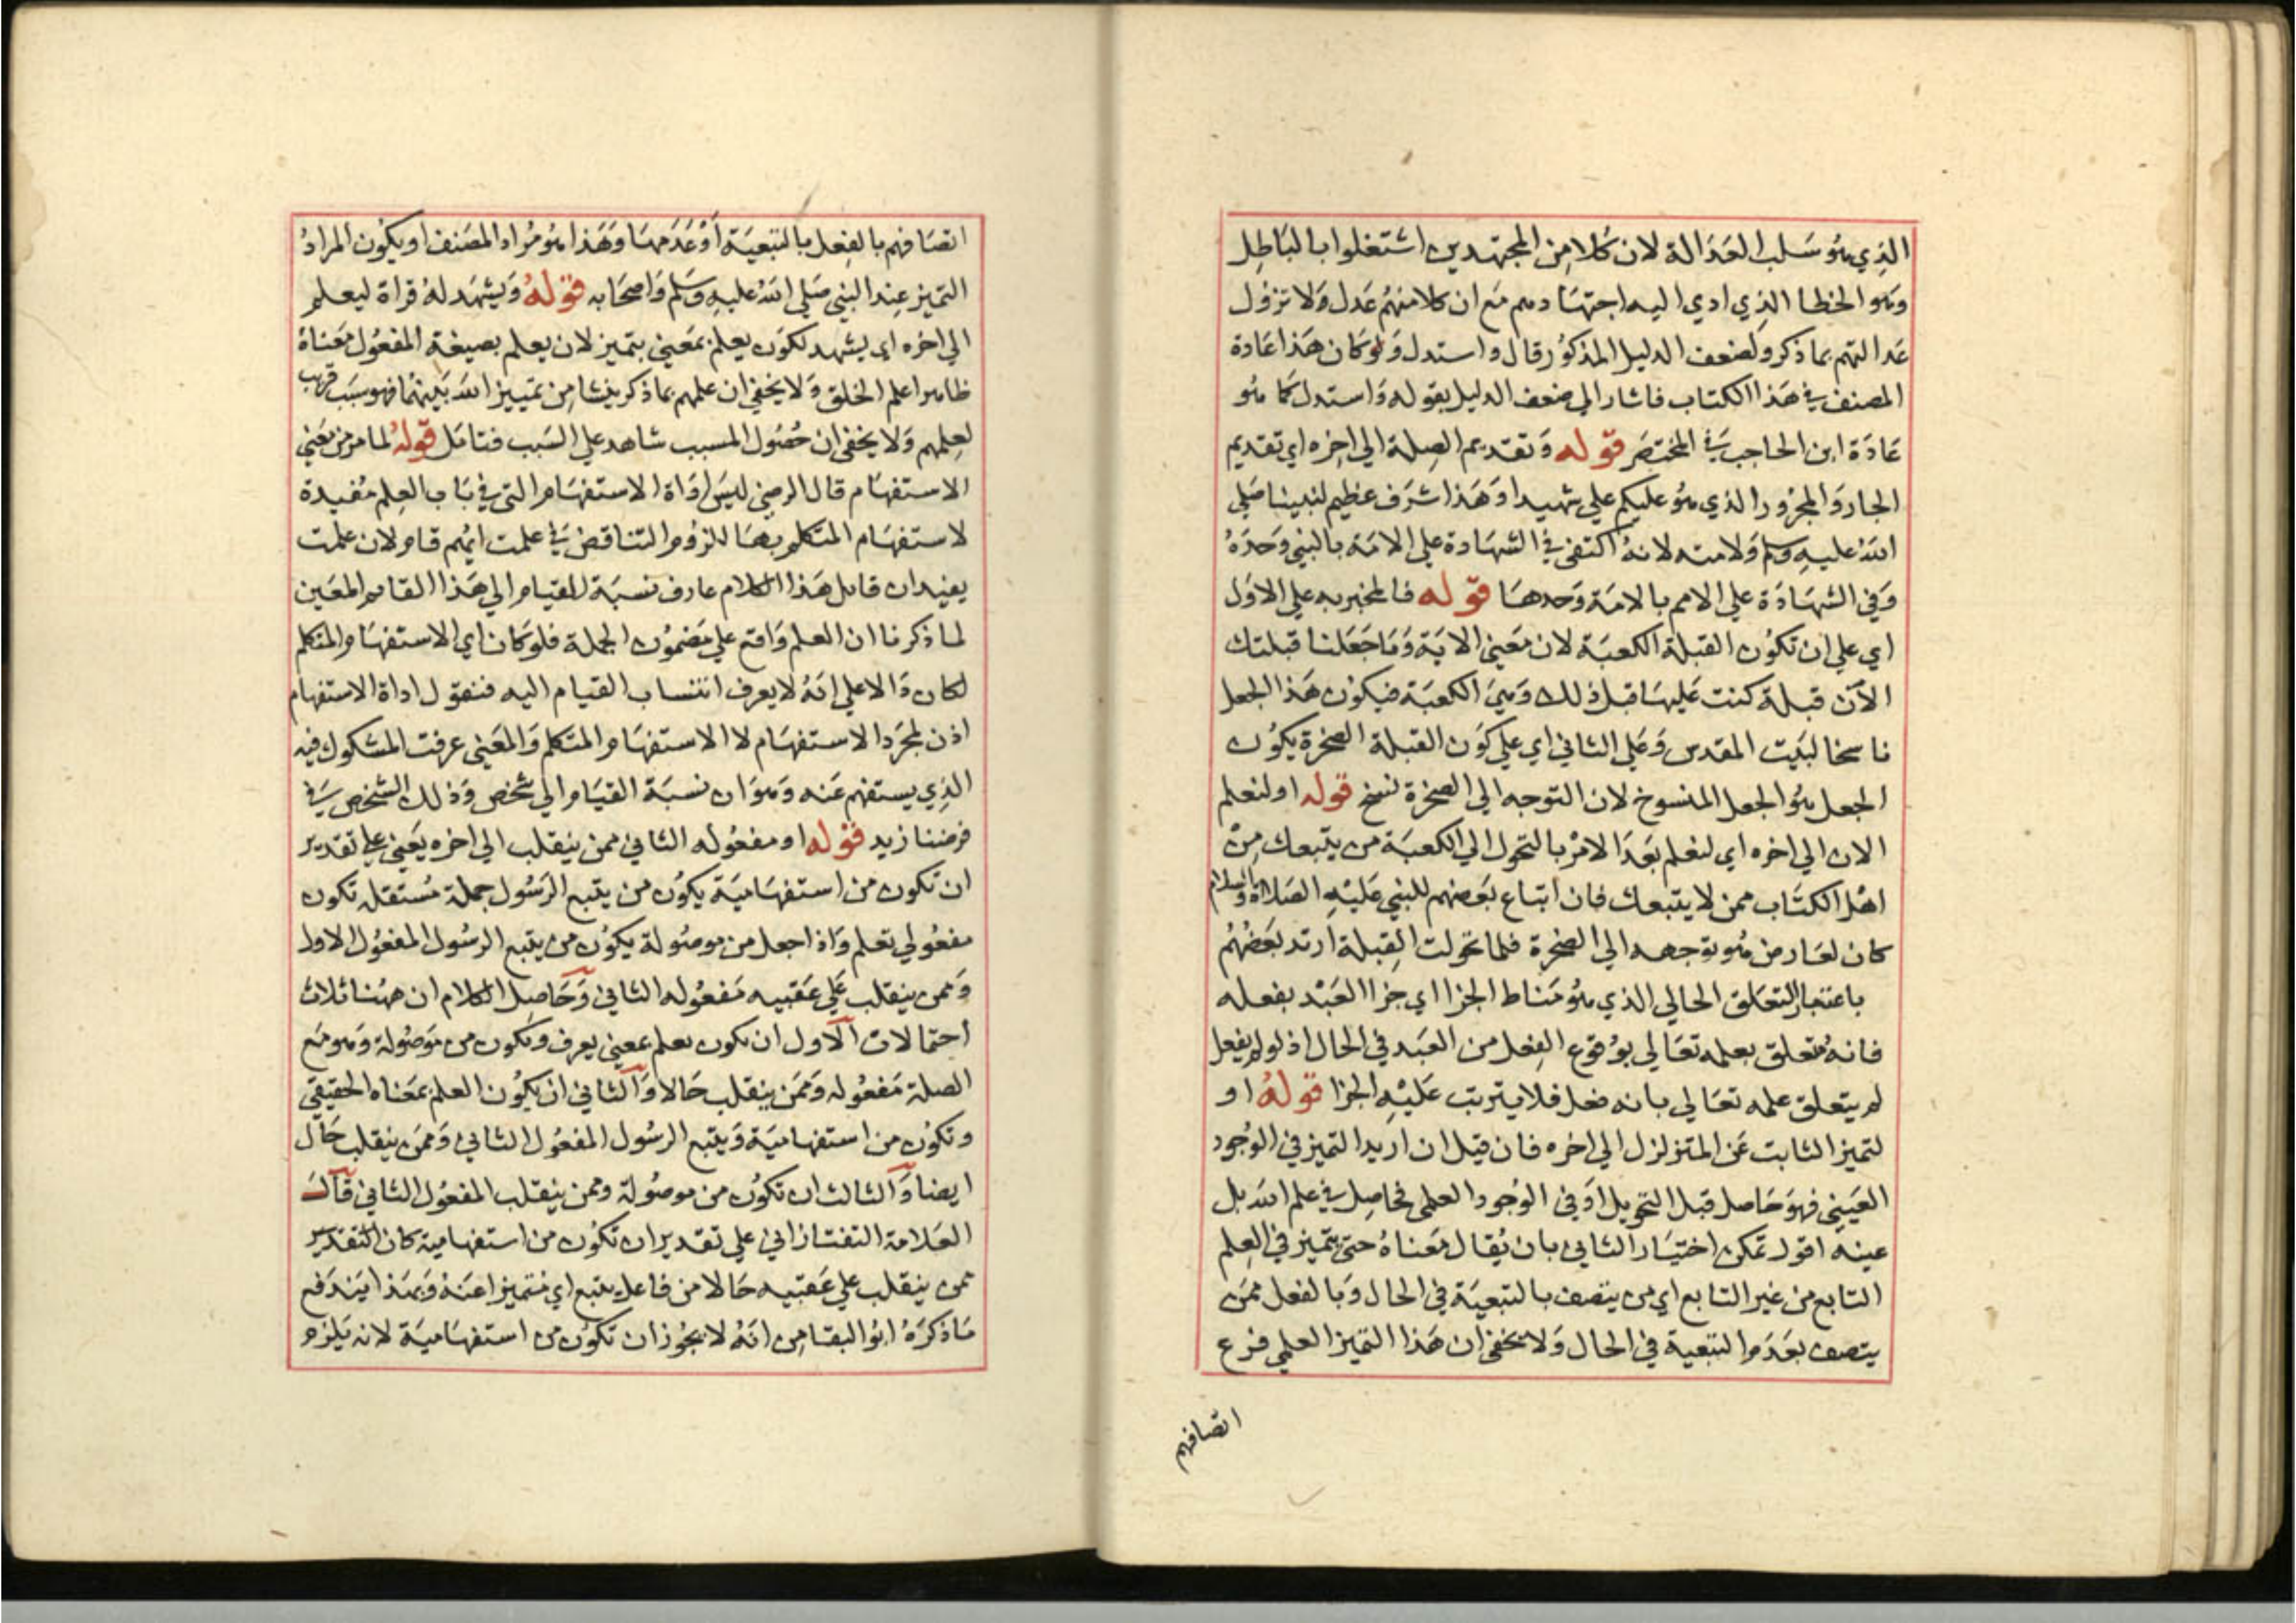 الذي هو سلب العدالة لان كلا من المجتهدين اشتغلوا بالباطل
وهو الخطا الذي ادي اليه اجتهادهم مع ان كلا منهم عدل ولا تزول
عدالتهم بما ذكر ولضعف الدليل المذكور قال واستدل ولو كان هذا عادة
المصنف في هذا الكتاب فاشار الي ضعف الدليل بقوله واستدل كما هو
عادة ابن الحاجب في المختصر قوله وتقديم الصلة الي اخره اي تقديم
الجار والمجرور الذي هو عليكم علي شهيدا وهذا شرف عظيم لنبينا صلي
الله عليه وسلم ولامته لانه اكتفي في الشهادة علي الامة بالنبي وحده
وفي الشهادة علي الامم بالامة وحدها قوله فالمخبر به علي الاول
اي علي ان تكون القبلة الكعبة لان معني الاية وما جعلنا قبلتك
الآن قبلة كنت عليها قبل ذلك وهي الكعبة فيكون هذا الجعل
ناسخا لبيت المقدس وعلي الثاني اي علي كون القبلة الصخرة يكون
الجعل هو الجعل المنسوخ لان التوجه الي الصخرة نسخ قوله او لنعلم
الان الي اخره اي لنعلم بعد الامر بالتحول الي الكعبة من يتبعك من
اهل الكتاب ممن لا يتبعك فان اتباع بعضهم للنبي عليه الصلاة والسلام
كان لعارض هو توجهه الي الصخرة فلما تحولت القبلة ارتد بعضهم
باعتبار التعلق الحالي الذي هو مناط الجزا اي جزا العبد بفعله
فانه متعلق بعلمه تعالي بوقوع الفعل من العبد في الحال اذ لو لم يفعل
لم يتعلق علمه تعالي بانه فعل فلا يترتب عليه الجزا قوله او
لتميز الثابت عن المتزلزل الي اخره فان قيل ان اريد التميز في الوجود
العيني فهو حاصل قبل التحويل او في الوجود العلمي فحاصل في علم الله بل
عينه اقول تمكن اختيار الثاني بان يقال معناه حتي يتميز في العلم
التابع من غير التابع اي من يتصف بالتبعية في الحال وبالفعل ممن
يتصف بعدم التبعية في الحال ولا يخفي ان هذا التميز العلمي فرع
اتصافهم
اتصافهم بالفعل بالتبعية او عدمها وهذا هو مراد المصنف او يكون المراد
التميز عند النبي صلي الله عليه وسلم واصحابه قوله ويشهد له قراة ليعلم
الي اخره اي يشهد لكون يعلم بمعني يتميز لان يعلم بصيغة المفعول معناه
ظاهرا علم الخلق ولا يخفي ان علمهم بما ذكر ينشا من تمييز الله بينهما فهو سبب قريب
لعلمهم ولا يخفي ان حصول المسبب شاهد علي السبب فتامل قوله لما مر من معني
الاستفهام قال الرضي ليس اداة الاستفهام التي في باب العلم مفيدة
لاستفهام المتكلم بها للزوم التناقض في علمت ايهم قام لان علمت
يفيد ان قايل هذا الكلام عارف نسبة القيام الي هذا القايم المعين
لما ذكرنا ان العلم واقع علي مضمون الجملة فلو كان اي الاستفهام المتكلم
لكان دالا علي انه لا يعرف انتساب القيام اليه فنقول اداة الاستفهام
اذن لمجرد الاستفهام لا الاستفهام المتكلم والمعني عرفت المشكوك فيه
الذي يستفهم عنه وهو ان نسبة القيام الي شخص وذلك الشخص في
فرضنا زيد قوله او مفعوله الثاني ممن ينقلب الي اخره يعني علي تقدير
ان تكون من استفهامية يكون من يتبع الرسول جملة مستقلة تكون
مفعولي تعلم واذا جعل من موصولة يكون من يتبع الرسول المفعول الاول
وممن ينقلب علي عقبيه مفعوله الثاني وحاصل الكلام ان ههنا ثلاث
احتمالات الاول ان يكون يعلم بمعني يعرف وتكون من موصولة وهو مع
الصلة مفعوله وممن ينقلب حالا والثاني ان يكون العلم بمعناه الحقيقي
وتكون من استفهامية ويتبع الرسول المفعول الثاني وممن ينقلب حال
ايضا والثالث ان تكون من موصولة وممن ينقلب المفعول الثاني قال
العلامة التفتازاني علي تقدير ان تكون من استفهامية كان التقدير
ممن ينقلب علي عقبيه حالا من فاعل يتبع اي متميزا عنه وبهذا يندفع
ما ذكره ابو البقا من انه لا يجوز ان تكون من استفهامية لانه يلزم